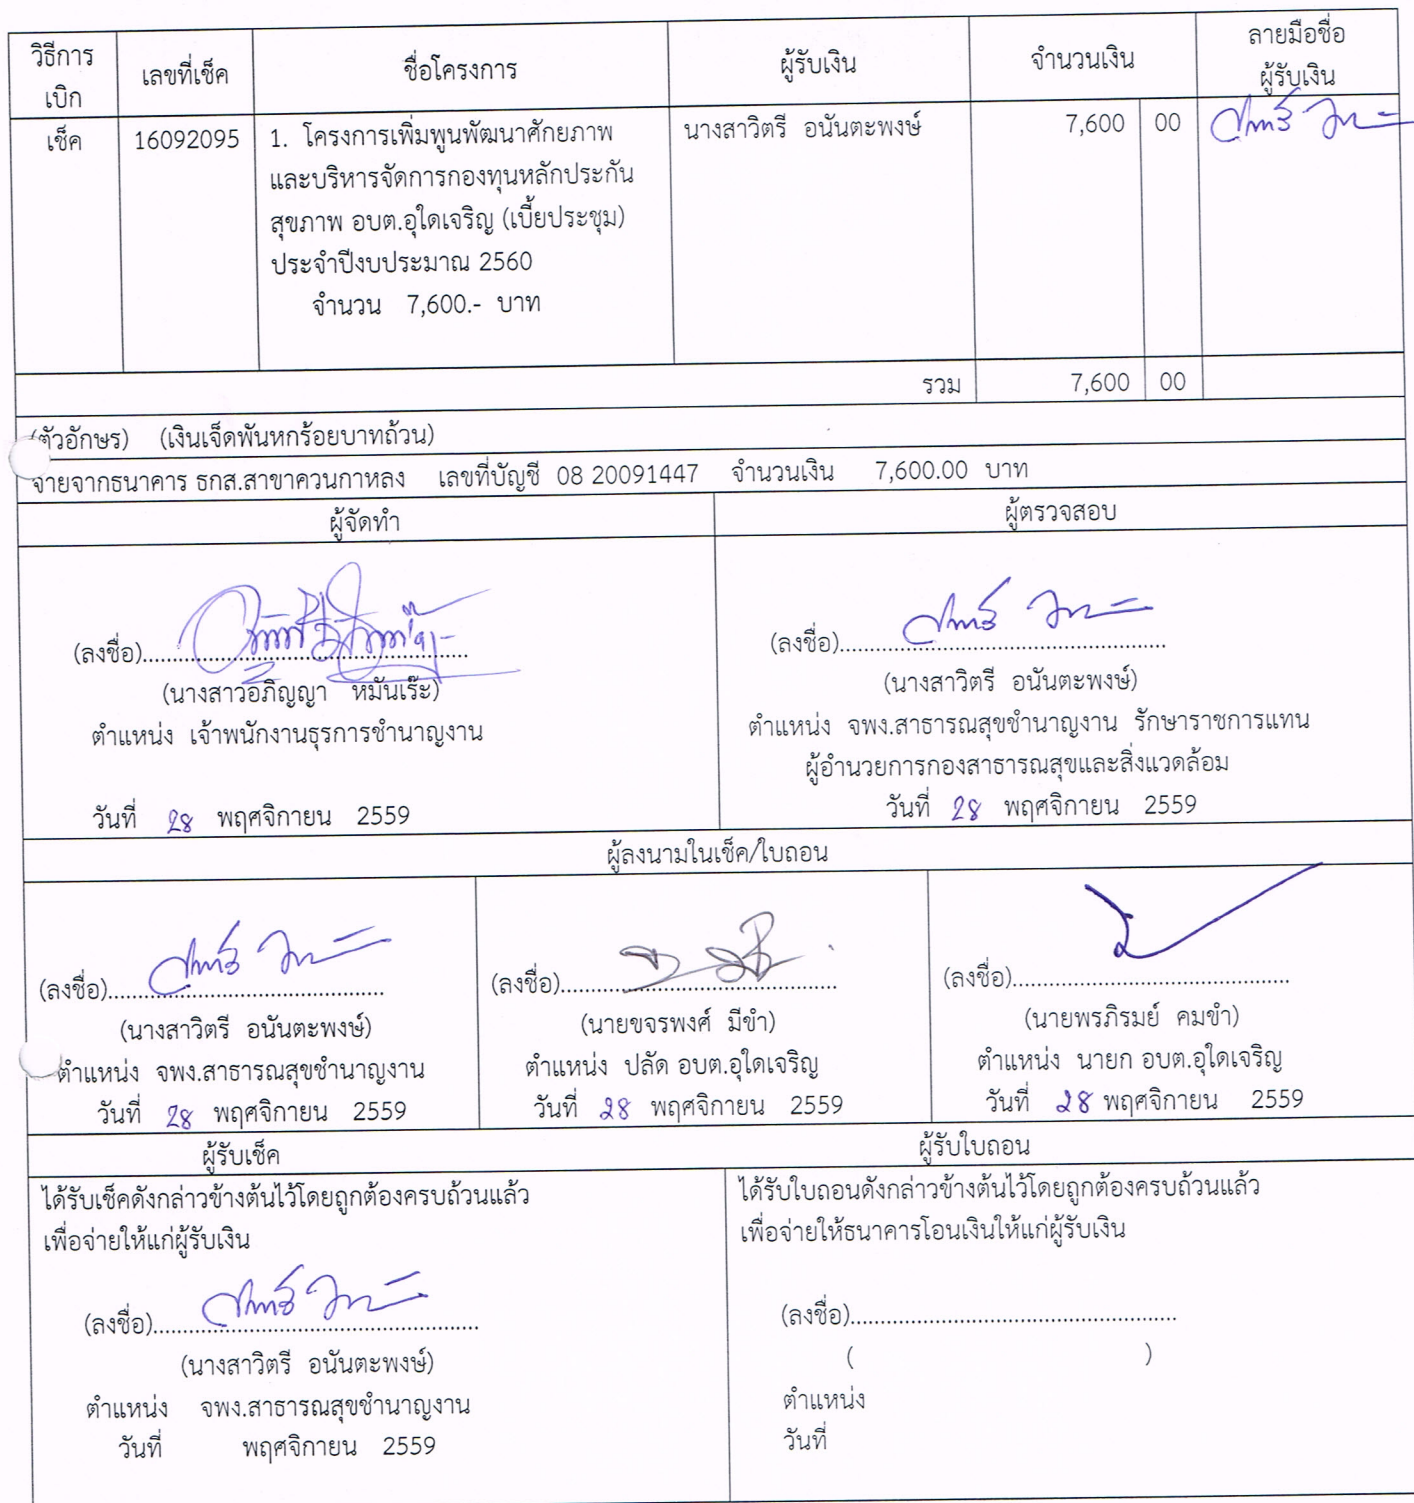 วิธีการ
เบิก
เลขที่เช็ค
ชื่อโครงการ
ผู้รับเงิน
จำนวนเงิน
ลายมือชื่อ
ผู้รับเงิน
เช็ค 16092095 1. โครงการเพิ่มพูนพัฒนาศักยภาพ นางสาวิตรี อนันตะพงษ์ 7,600 00
และบริหารจัดการกองทุนหลักประกัน
สุขภาพ อบต.อุใดเจริญ (เบี้ยประชุม)
ประจำปีงบประมาณ 2560
จำนวน 7,600.- บาท
รวม 7,600 00
(ตัวอักษร) (เงินเจ็ดพันหกร้อยบาทถ้วน)
จ่ายจากธนาคาร ธกส.สาขาควนกาหลง เลขที่บัญชี 08 20091447 จำนวนเงิน 7,600.00 บาท
ผู้จัดทำ
(ลงชื่อ)
(นางสาวอภิญญา หมันเร๊ะ)
ตำแหน่ง เจ้าพนักงานธุรการชำนาญงาน
วันที่ 28 พฤศจิกายน 2559
ผู้ตรวจสอบ
(ลงชื่อ)
(นางสาวิตรี อนันตะพงษ์)
ตำแหน่ง จพง.สาธารณสุขชำนาญงาน รักษาราชการแทน
ผู้อำนวยการกองสาธารณสุขและสิ่งแวดล้อม
วันที่ 28 พฤศจิกายน 2559
ผู้ลงนามในเช็ค/ใบถอน
(ลงชื่อ)
(นางสาวิตรี อนันตะพงษ์)
ตำแหน่ง จพง.สาธารณสุขชำนาญงาน
วันที่ 28 พฤศจิกายน 2559
(ลงชื่อ)
(นายขจรพงศ์ มีขำ)
ตำแหน่ง ปลัด อบต.อุใดเจริญ
วันที่ 28 พฤศจิกายน 2559
(ลงชื่อ)
(นายพรภิรมย์ คมขำ)
ตำแหน่ง นายก อบต.อุใดเจริญ
วันที่ 28 พฤศจิกายน 2559
ผู้รับเช็ค
ได้รับเช็คดังกล่าวข้างต้นไว้โดยถูกต้องครบถ้วนแล้ว
เพื่อจ่ายให้แก่ผู้รับเงิน
(ลงชื่อ)
(นางสาวิตรี อนันตะพงษ์)
ตำแหน่ง จพง.สาธารณสุขชำนาญงาน
วันที่ พฤศจิกายน 2559
ผู้รับใบถอน
ได้รับใบถอนดังกล่าวข้างต้นไว้โดยถูกต้องครบถ้วนแล้ว
เพื่อจ่ายให้ธนาคารโอนเงินให้แก่ผู้รับเงิน
(ลงชื่อ)
( )
ตำแหน่ง
วันที่